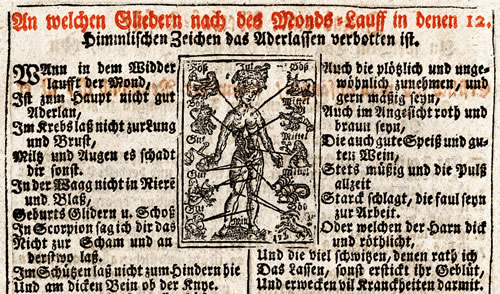 An welchen Gliedern nach des Monds-Lauff in denen 12.
Himmlischen Zeichen das Aderlassen verbotten ist.
WAnn in dem Widder
laufft der Mond,
Ist zum Haupt nicht gut
Aderlan,
Im Krebs laß nicht zur Lung
und Brust,
Miltz und Augen es schadt
dir sonst.
In der Waag nicht in Niere
und Blaß,
Geburts Glidern u. Schoß
In Scorpion sag ich dir das
Nicht zur Scham und an
derstwo laß.
Im Schützen laß nicht zum Hindern hie
Und am dicken Bein ob der Knye.
Böß
Böß
Gut
Mittel
Mittel
Gut
Böß
Auch die plötzlich und unge-
wöhnlich zunehmen, und
gern mäßig seyn,
Auch im Angesicht roth und
braun seyn,
Die auch gute Speiß und gu-
ten Wein,
Stets müßig und die Pulß
allzeit
Starck schlagt, die faul seyn
zur Arbeit.
Oder welchen der Harn dick
und röthlicht,
Und die viel schwitzen, denen rath ich
Das Lassen, sonst erstickt ihr Geblüt,
Und erwecken vil Kranckheiten darmit.